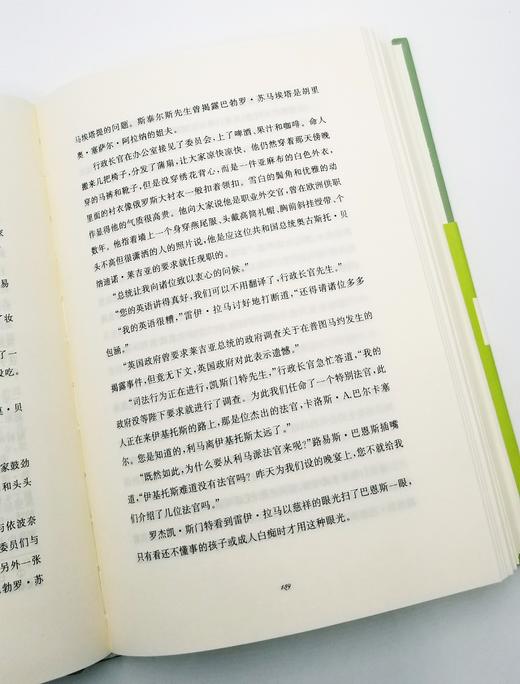 马埃塔提的问题。斯泰尔斯先生曾揭露巴勃罗·苏马埃塔是胡里
奥·塞萨尔·阿拉纳的姐夫。
行政长官在办公室接见了委员会，上了啤酒、果汁和咖啡。命人
搬来几把椅子，分发了蒲扇，让大家凉快凉快。他仍然穿着那天傍晚
穿的马裤和靴子，但是没穿绣花背心，而是一件亚麻布的白色外衣，
里面的衬衣像俄罗斯大衬衣一般扣着领扣。雪白的鬓角和优雅的动
作显得他的气质很高贵。他向大家说他是职业外交官，曾在欧洲供职
数年。他指着墙上一个身穿燕尾服、头戴高筒礼帽、胸前斜挂绶带、个
头不高但很潇洒的人的照片说，他是应这位共和国总统奥古斯托·贝
纳迪诺·莱吉亚的要求就任现职的。
“总统让我向诸位致以衷心的问候。”
“您的英语讲得真好，我们可以不用翻译了，行政长官先生。”
“我的英语很糟，”雷伊·拉马讨好地打断道，“还得请诸位多多
包涵。”
“英国政府曾要求莱吉亚总统的政府调查关于在普图马约发生的
揭露事件，但竟无下文，英国政府对此表示遗憾。”
“司法行为正在进行，凯斯门特先生，”行政长官急忙答道，“我的
政府没等陛下要求就进行了调查。为此我们任命了一个特别法官，此
人正在来伊基托斯的路上，那是位杰出的法官，卡洛斯·A.巴尔卡塞
尔。您是知道的，利马离伊基托斯太远了。”
“既然如此，为什么要从利马派法官来呢？”路易斯·巴恩斯插嘴
道，“伊基托斯难道没有法官吗？昨天为我们设的晚宴上，您不就给我
们介绍了几位法官吗。”
罗杰凯·斯门特看到雷伊·拉马以慈祥的眼光扫了巴恩斯一眼，
只有看还不懂事的孩子或成人白痴时才用这种眼光。
家
易
了妆
了一
没吃。
·贝
家鼓劲
和头头
与依波奈
委员们与
另外一张
勃罗·苏